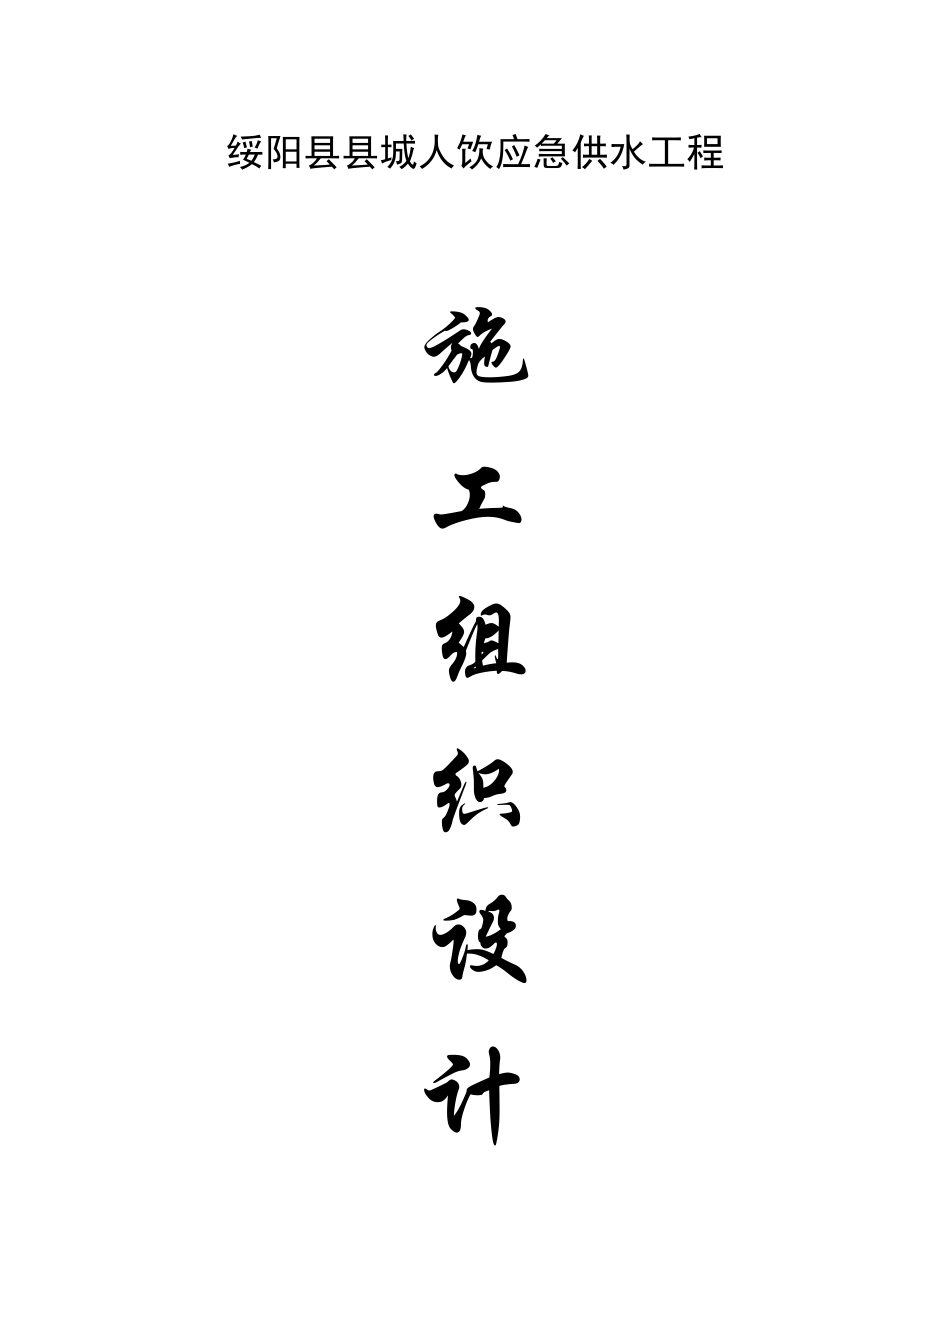 绥阳县县城人饮应急供水工程
施
工
组
织
设
计